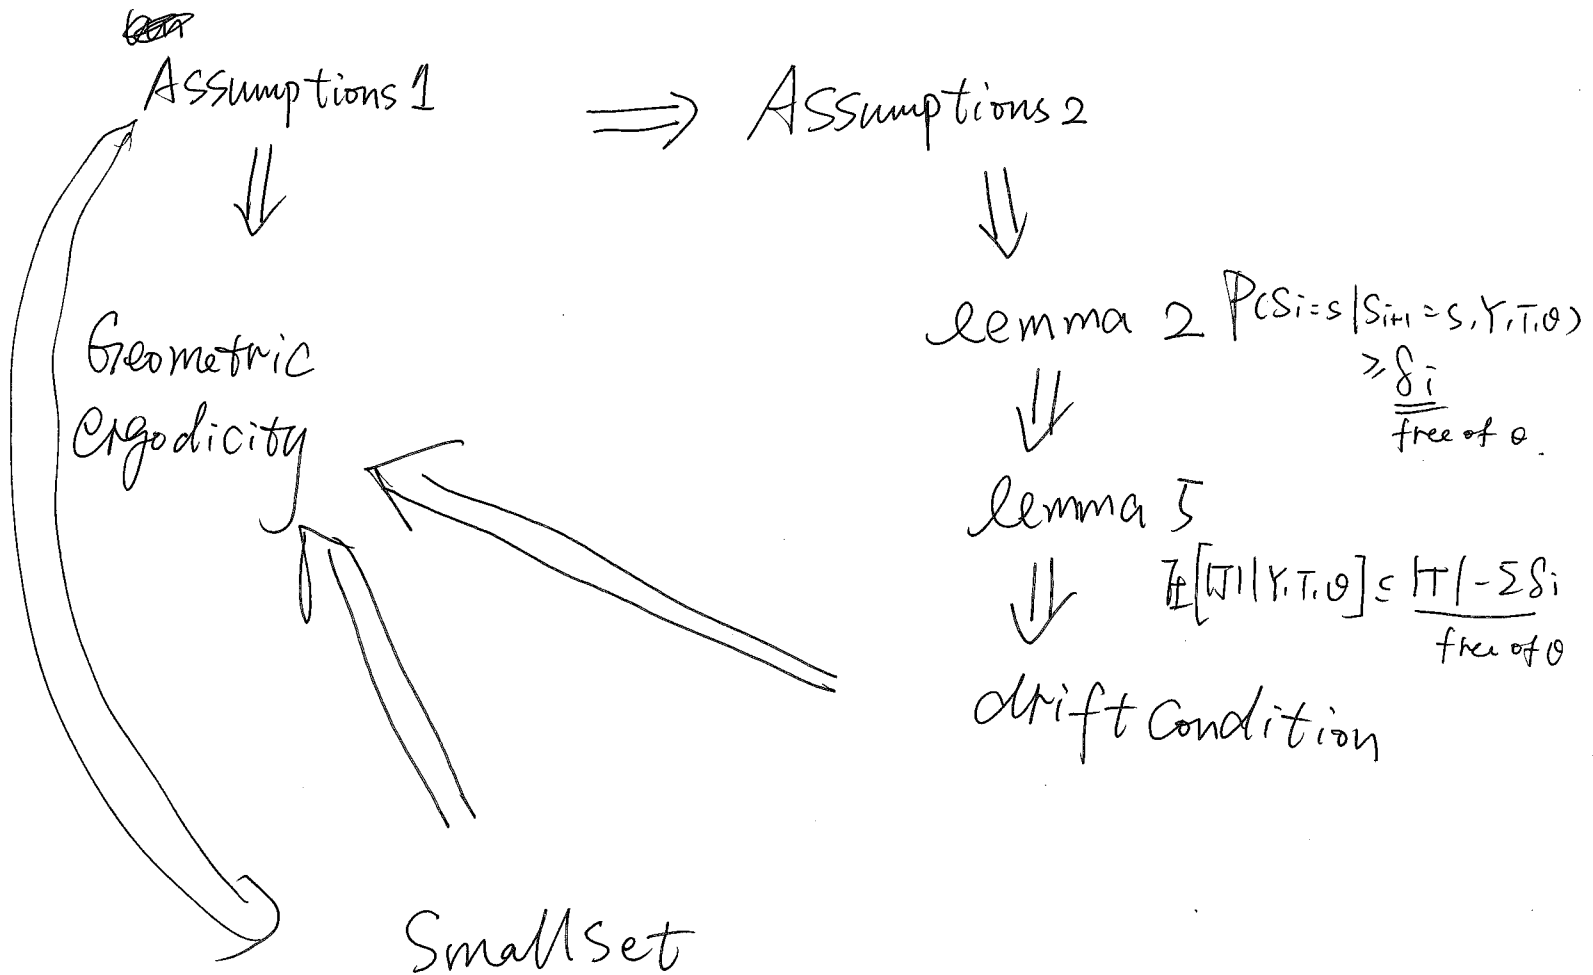 Assumptions 1
⇒
Assumptions 2
⇓
⇓
Geometric
ergodicity
lemma 2 P(Si=s|Si+1=s,Y,T,θ)
≥ δi
free of θ.
⇓
lemma 5
E[|J||Y,T,θ] ≤ |T| - Σδi
free of θ
⇓
drift condition
Small set